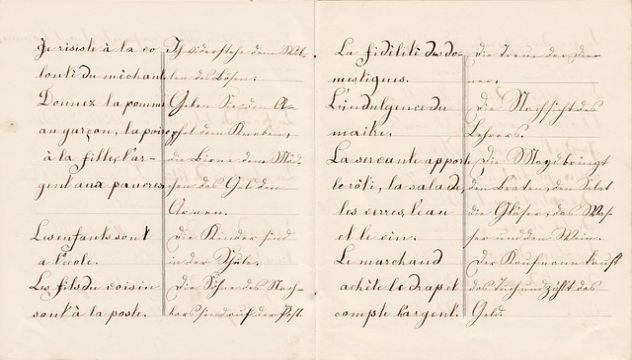 Je risiste à la vo
lonti du michant
Donnez la pomme
au garçon, la poire
à la fille, l'ar-
gent aux pauvres
Les enfants sont
a l'ecole.
Les fils du voisin
sont à la poste.
Ich widerstehe dem Wil-
len des Bösen.
Geben Sie den A-
pfel dem Knaben,
die Birne dem Mäd-
chen das Geld den
Armen.
Die Kinder sind
in der Schule.
Die Söhne des Nach-
bars sind auf der Post.
La fidiliti des do-
mestiques.
L'indulgence du
maitre.
La servante apporte
le rôti, la salade
les verres, l'eau
et le vin.
Le marchand
achète le drap et
compte l'argent.
Die Treue der Die-
ner.
Die Nachsicht des
Lehrers.
Die Magd bringt
den Braten, den Salat
die Gläser, das Was-
ser und den Wein.
Der Kaufmann kauft
das Tuch und zählt das
Geld